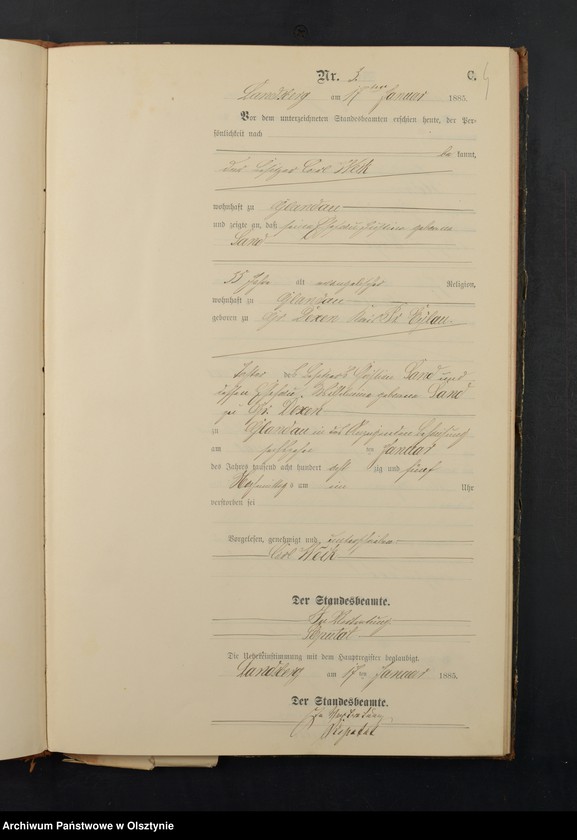 Nr. 3. C.
Landsberg am 17ten Januar 1885.
Vor dem unterzeichneten Standesbeamten erschien heute, der Per-
sönlichkeit nach
be kannt,
der Besitzer Carl
wohnhaft zu Glandau
und zeigte an, daß seine Ehefrau geborene
Sand
55 Jahre alt evangelischer Religion,
wohnhaft zu Glandau
geboren zu Gr. Dexen Kreis Pr. Eylau
Tochter des Besitzers Sand und
dessen Ehefrau Wilhelmine geborene Sand
zu Gr. Dexen
zu Glandau in des Behausung
am sechszehn ten Januar
des Jahres tausend acht hundert acht zig und fünf
Nachmittags um Uhr
verstorben sei
Vorgelesen, genehmigt und unterschrieben
Carl
Der Standesbeamte.
In Vertretung
Die Uebereinstimmung mit dem Hauptregister beglaubigt.
Landsberg am 17ten Januar 1885.
Der Standesbeamte.
In Vertretung
Archiwum Państwowe w Olsztynie